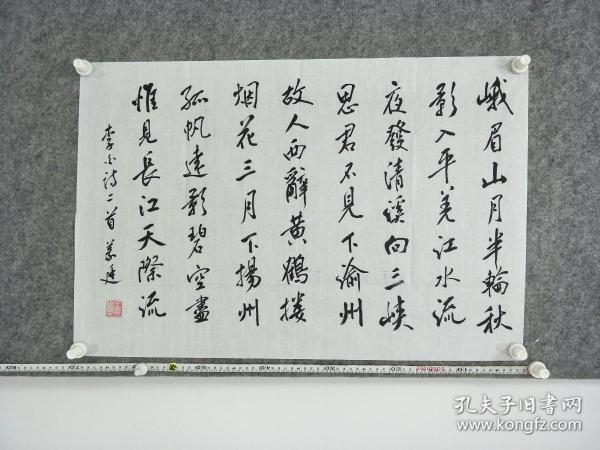 峨眉山月半輪秋
影入平羌江水流
夜發清溪向三峽
思君不見下渝州
故人西辭黄鶴楼
烟花三月下揚州
孤帆遠影碧空盡
惟見長江天際流
李白詩二首
孔夫子旧书网
www.kongfz.com